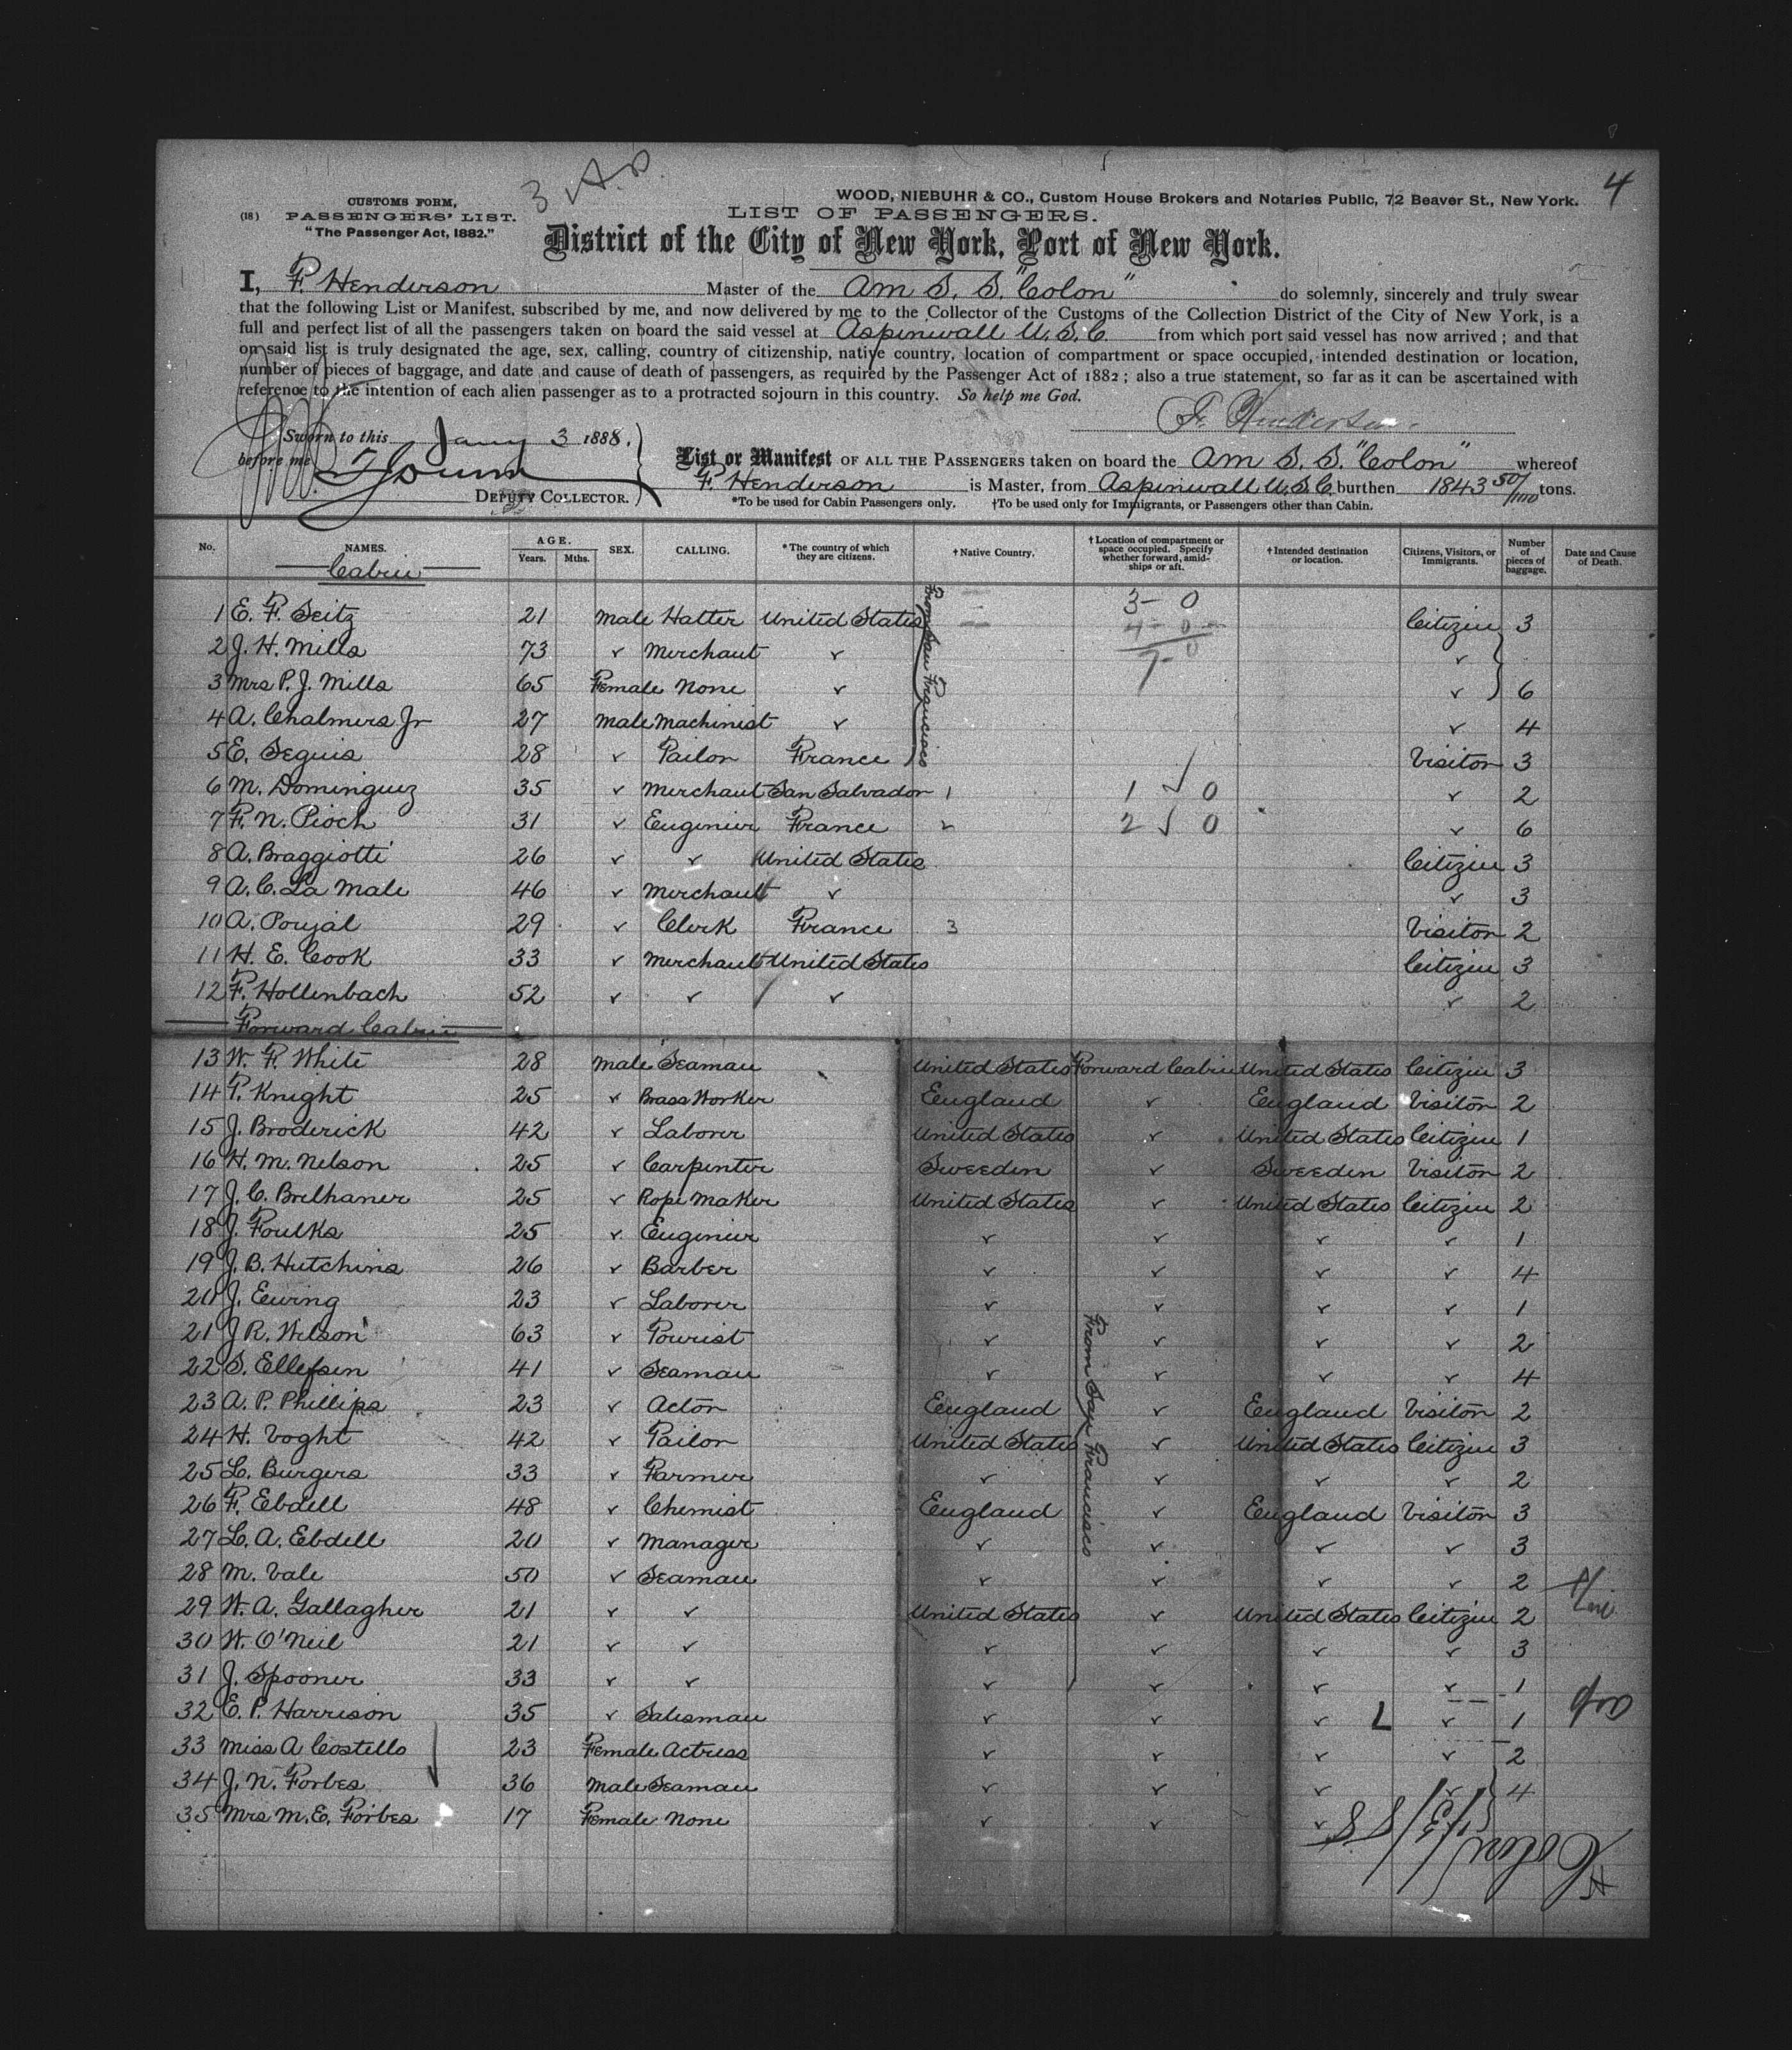 4
3 A.D.
CUSTOMS FORM,
(18) PASSENGERS' LIST.
"The Passenger Act, 1882."
WOOD, NIEBUHR & CO., Custom House Brokers and Notaries Public, 72 Beaver St., New York.
LIST OF PASSENGERS.
District of the City of New York, Port of New York.
I, F. Henderson Master of the Am S. S. "Colon" do solemnly, sincerely and truly swear
that the following List or Manifest, subscribed by me, and now delivered by me to the Collector of the Customs of the Collection District of the City of New York, is a
full and perfect list of all the passengers taken on board the said vessel at Aspinwall U.S.C. from which port said vessel has now arrived; and that
on said list is truly designated the age, sex, calling, country of citizenship, native country, location of compartment or space occupied, intended destination or location,
number of pieces of baggage, and date and cause of death of passengers, as required by the Passenger Act of 1882; also a true statement, so far as it can be ascertained with
reference to the intention of each alien passenger as to a protracted sojourn in this country. So help me God.
F. Henderson
Sworn to this Jany 3 1888.
before me
DEPUTY COLLECTOR.
List or Manifest OF ALL THE PASSENGERS taken on board the Am S. S. "Colon" whereof
F. Henderson is Master, from Aspinwall U.S.C. burthen 1843 50/100 tons.
*To be used for Cabin Passengers only. †To be used only for Immigrants, or Passengers other than Cabin.
No. NAMES. AGE. Years. Mths. SEX. CALLING. *The country of which they are citizens. †Native Country. †Location of compartment or space occupied. Specify whether forward, amidships or aft. †Intended destination or location. Citizens, Visitors, or Immigrants. Number of pieces of baggage. Date and Cause of Death.
Cabin
From San Francisco
3 - 0
4 - 0
7 - 0
1 E. F. Seitz 21 Male Hatter United States Citizen 3
2 J. H. Mills 73 ✓ Merchant ✓ ✓
3 Mrs P. J. Mills 65 Female None ✓ ✓ 6
4 A. Chalmers Jr 27 Male Machinist ✓ ✓ 4
5 E. Seguis 28 ✓ Tailor France Visitor 3
6 M. Dominguez 35 ✓ Merchant San Salvador 1 1 ✓ 0 ✓ 2
7 F. N. Pioch 31 ✓ Engenier France 2 2 ✓ 0 ✓ 6
8 A. Braggiotti 26 ✓ ✓ United States Citizen 3
9 A. C. La Male 46 ✓ Merchant ✓ ✓ 3
10 A. Poujal 29 ✓ Clerk France 3 Visitor 2
11 H. E. Cook 33 ✓ Merchant United States Citizen 3
12 F. Hollenbach 52 ✓ ✓ ✓ ✓ 2
Forward Cabin
13 W. F. White 28 Male Seaman United States Forward Cabin United States Citizen 3
14 T. Knight 25 ✓ Brass Worker England ✓ England Visitor 2
15 J. Broderick 42 ✓ Laborer United States ✓ United States Citizen 1
16 H. M. Nelson 25 ✓ Carpenter Sweeden ✓ Sweeden Visitor 2
17 J. C. Brelhaner 25 ✓ Rope Maker United States ✓ United States Citizen 2
18 J. Foulks 25 ✓ Engenier ✓ ✓ ✓ ✓ 1
19 J. B. Hutchins 26 ✓ Barber ✓ ✓ ✓ ✓ 4
20 J. Ewing 23 ✓ Laborer ✓ ✓ ✓ ✓ 1
21 J R. Wilson 63 ✓ Tourist ✓ ✓ ✓ ✓ 2
22 S. Ellefsen 41 ✓ Seaman ✓ ✓ ✓ ✓ 4
From San Francisco
23 A. P. Phillips 23 ✓ Actor England ✓ England Visitor 2
24 H. Voght 42 ✓ Tailor United States ✓ United States Citizen 3
25 L. Burgers 33 ✓ Farmer ✓ ✓ ✓ ✓ 2
26 F. Ebdell 48 ✓ Chemist England ✓ England Visitor 3
27 L. A. Ebdell 20 ✓ Manager ✓ ✓ ✓ ✓ 3
28 M. Vale 50 ✓ Seaman ✓ ✓ ✓ ✓ 2
29 W. A. Gallagher 21 ✓ ✓ United States ✓ United States Citizen 2
30 W. O'Neil 21 ✓ ✓ ✓ ✓ ✓ ✓ 3
31 J. Spooner 33 ✓ ✓ ✓ ✓ ✓ ✓ 1
32 E. P. Harrison 35 ✓ Salesman ✓ ✓ ✓ ✓ 1
33 Miss A Costello 23 Female Actress ✓ ✓ ✓ ✓ 2
34 J. N. Forbes 36 Male Seaman ✓ ✓ ✓ ✓ 4
35 Mrs M. E. Forbes 17 Female None ✓ ✓ ✓
Colon 1/3/88